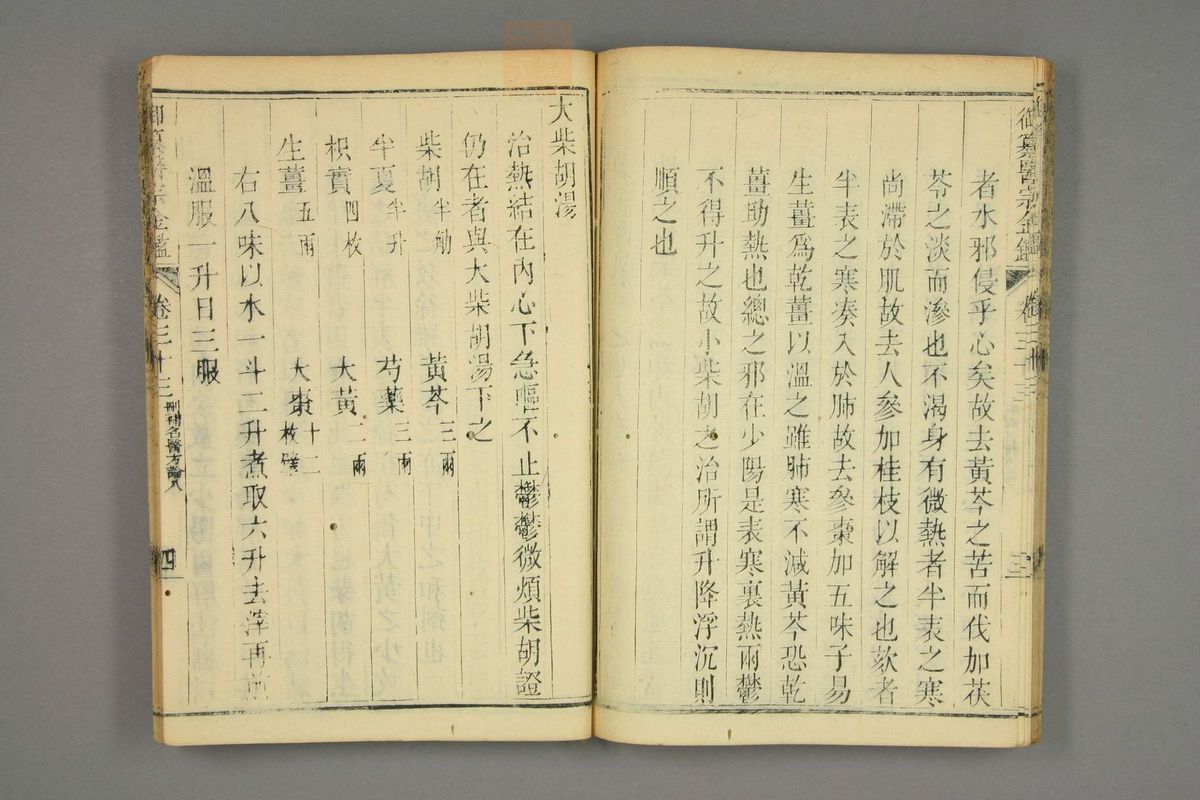 御纂醫宗金鑑
卷三十三
三
者水邪侵乎心矣故去黃芩之苦而伐加茯
苓之淡而滲也不渴身有微熱者半表之寒
尚滯於肌故去人參加桂枝以解之也欬者
半表之寒湊入於肺故去參棗加五味子易
生薑爲乾薑以溫之雖肺寒不減黃芩恐乾
薑助熱也總之邪在少陽是表寒裏熱兩鬱
不得升之故小柴胡之治所謂升降浮沉則
順之也
大柴胡湯
治熱結在內心下急嘔不止鬱鬱微煩柴胡證
仍在者與大柴胡湯下之
柴胡半觔 黃芩三兩
半夏半升 芍藥三兩
枳實四枚 大黃二兩
生薑五兩 大棗十二枚擘
右八味以水一斗二升煮取六升去滓再煎
溫服一升日三服
御纂醫宗金鑑
卷三十三
刪補名醫方論八
四